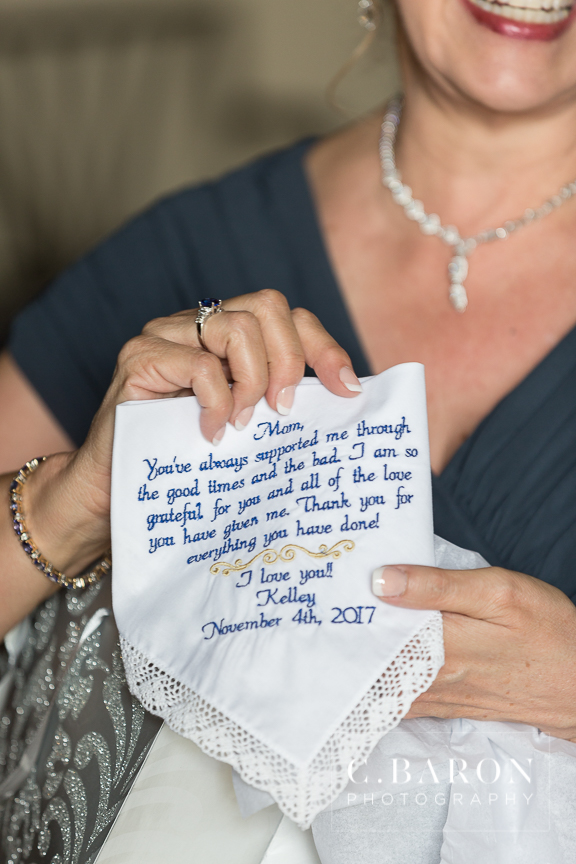 Mom,
You've always supported me through
the good times and the bad. I am so
grateful for you and all of the love
you have given me. Thank you for
everything you have done!
I love you!!
Kelley
November 4th, 2017
C. BARON
PHOTOGRAPHY